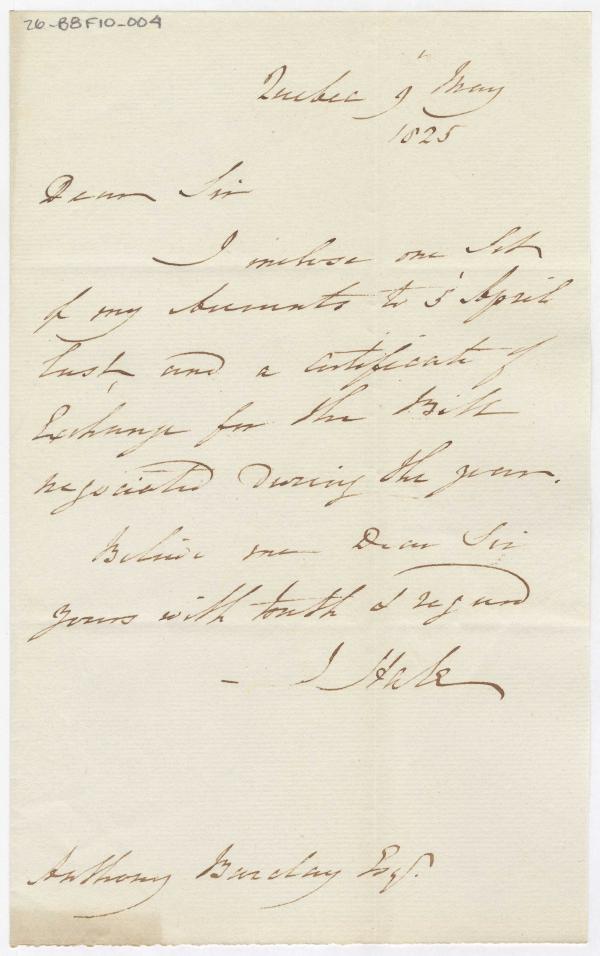 26-B8F10-004
Quebec 9 May
1825
Dear Sir
I inclose one Set
of my Accounts to 5 April
last, and a Certificate of
Exchange for the Bills
negociated During the year.
Believe me Dear Sir
yours with truth & regard
- J Hale
Anthony Barclay Esqr.